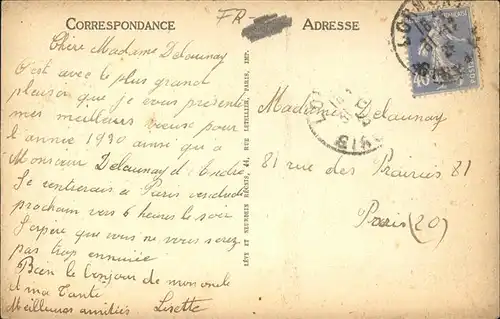 CORRESPONDANCE
FR-
ADRESSE
Chère Madame Delaunay
C'est avec le plus grand
plaisir que je vous présente
mes meilleurs vœux pour
l'année 1930 ainsi que a
Monsieur Delaunay et André
Je rentrerais a Paris vendredi
prochain vers 6 heures le soir
J'espère que vous ne vous serez
pas trop ennuiée
Bien le bonjour de mon oncle
et ma Tante
Meilleures amitiés Lisette
LÉVY ET NEURDEIN RÉUNIS, 44, RUE LETELLIER, PARIS, IMP.
Madame Delaunay
81 rue des Prairies 81
Paris (20)